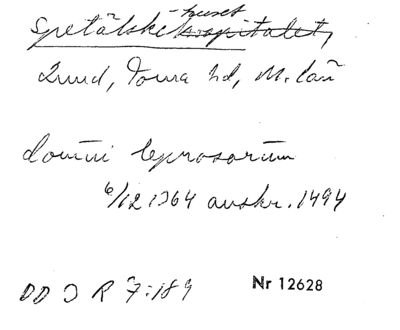 -huset
Spetälske hospitalet,
Lund, Torna hd, M. län
domui leprosorum
6/12 1364 avskr. 1494
DD 3 R 7:189
Nr 12628